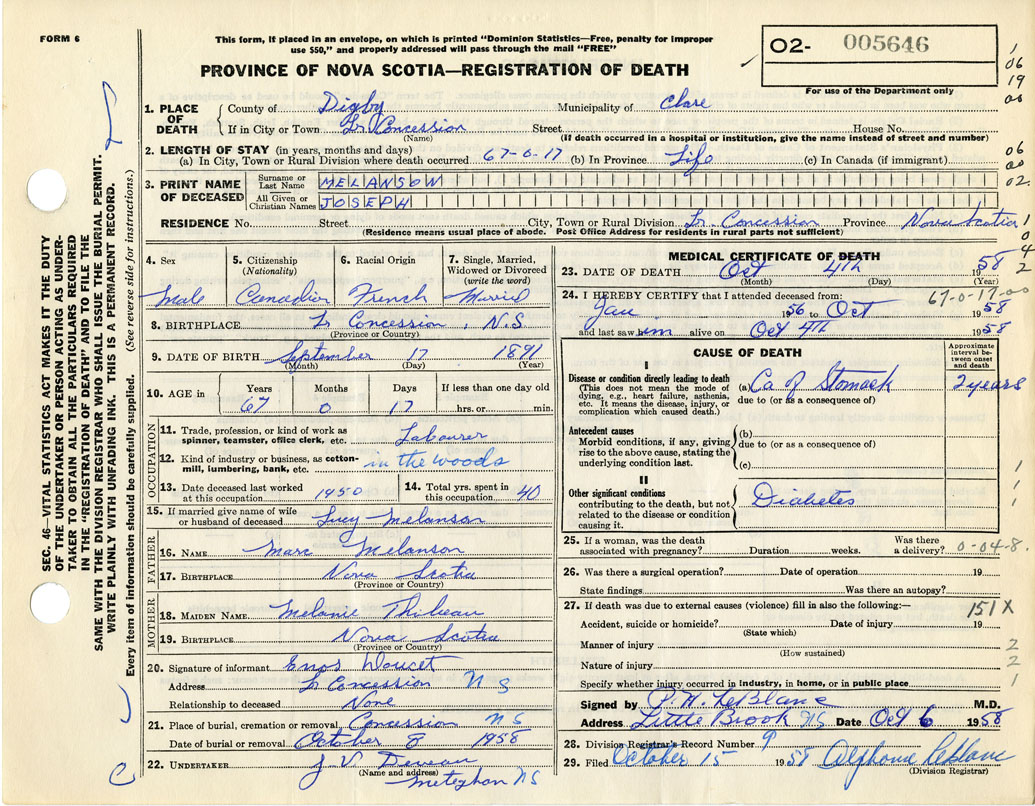 FORM 6
This form, if placed in an envelope, on which is printed "Dominion Statistics—Free, penalty for improper
use $50," and properly addressed will pass through the mail "FREE"
PROVINCE OF NOVA SCOTIA—REGISTRATION OF DEATH
O2- 005646
For use of the Department only
1
06
19
00
SEC. 46—VITAL STATISTICS ACT MAKES IT THE DUTY
OF THE UNDERTAKER OR PERSON ACTING AS UNDER-
TAKER TO OBTAIN ALL THE PARTICULARS REQUIRED
IN THE "REGISTRATION OF DEATH" AND TO FILE THE
SAME WITH THE DIVISION REGISTRAR WHO SHALL ISSUE THE BURIAL PERMIT.
WRITE PLAINLY WITH UNFADING INK. THIS IS A PERMANENT RECORD.
Every item of information should be carefully supplied. (See reverse side for instructions.)
1. PLACE OF DEATH
County of Digby Municipality of Clare
If in City or Town Lr Concession Street House No.
(Name) (If death occurred in a hospital or institution, give the name instead of street and number)
2. LENGTH OF STAY (in years, months and days)
(a) In City, Town or Rural Division where death occurred 67-0-17 (b) In Province Life (c) In Canada (if immigrant)
06
00
02
3. PRINT NAME OF DECEASED
Surname or Last Name MELANSON
All Given or Christian Names JOSEPH
RESIDENCE No. Street City, Town or Rural Division Lr. Concession Province Nova Scotia
(Residence means usual place of abode. Post Office Address for residents in rural parts not sufficient)
1
0
4
2
4. Sex 5. Citizenship (Nationality) 6. Racial Origin 7. Single, Married, Widowed or Divorced (write the word)
Male Canadian French Married
8. BIRTHPLACE Lr Concession, N.S
(Province or Country)
9. DATE OF BIRTH September 17 1891
(Month) (Day) (Year)
10. AGE in Years Months Days If less than one day old
67 0 17 hrs. or min.
OCCUPATION
11. Trade, profession, or kind of work as spinner, teamster, office clerk, etc. Labourer
12. Kind of industry or business, as cotton-mill, lumbering, bank, etc. in the woods
13. Date deceased last worked at this occupation 1950 14. Total yrs. spent in this occupation 40
15. If married give name of wife or husband of deceased Lucy Melanson
FATHER
16. NAME Marc Melanson
17. BIRTHPLACE Nova Scotia
(Province or Country)
MOTHER
18. MAIDEN NAME Melanie Thibeau
19. BIRTHPLACE Nova Scotia
(Province or Country)
20. Signature of informant Enos Doucet
Address Lr Concession N S
Relationship to deceased None
21. Place of burial, cremation or removal Concession NS
Date of burial or removal October 8 1958
22. UNDERTAKER J V Deveau
(Name and address) Meteghan NS
MEDICAL CERTIFICATE OF DEATH
23. DATE OF DEATH Oct 4th 1958
(Month) (Day)
24. I HEREBY CERTIFY that I attended deceased from: 67-0-17-00
Jan 1956 to Oct 1958
and last saw him alive on Oct 4th 1958
CAUSE OF DEATH
Approximate interval between onset and death
I
Disease or condition directly leading to death
(This does not mean the mode of dying, e.g., heart failure, asthenia, etc. It means the disease, injury, or complication which caused death.)
(a) Ca of Stomack 2 years
due to (or as a consequence of)
Antecedent causes
Morbid conditions, if any, giving rise to the above cause, stating the underlying condition last.
(b)
due to (or as a consequence of)
(c)
II
Other significant conditions
contributing to the death, but not related to the disease or condition causing it.
Diabetes
1
1
1
25. If a woman, was the death associated with pregnancy? Duration weeks. Was there a delivery? 0-04-8.
26. Was there a surgical operation? Date of operation 19
State findings Was there an autopsy?
27. If death was due to external causes (violence) fill in also the following:— 151X
Accident, suicide or homicide? Date of injury 19
(State which)
Manner of injury 2
(How sustained)
Nature of injury 2
Specify whether injury occurred in industry, in home, or in public place 1
Signed by P. H. LeBlanc M.D.
Address Little Brook NS Date Oct 6 1958
28. Division Registrar's Record Number 9
29. Filed October 15 1958 Alphonse LeBlanc
(Division Registrar)